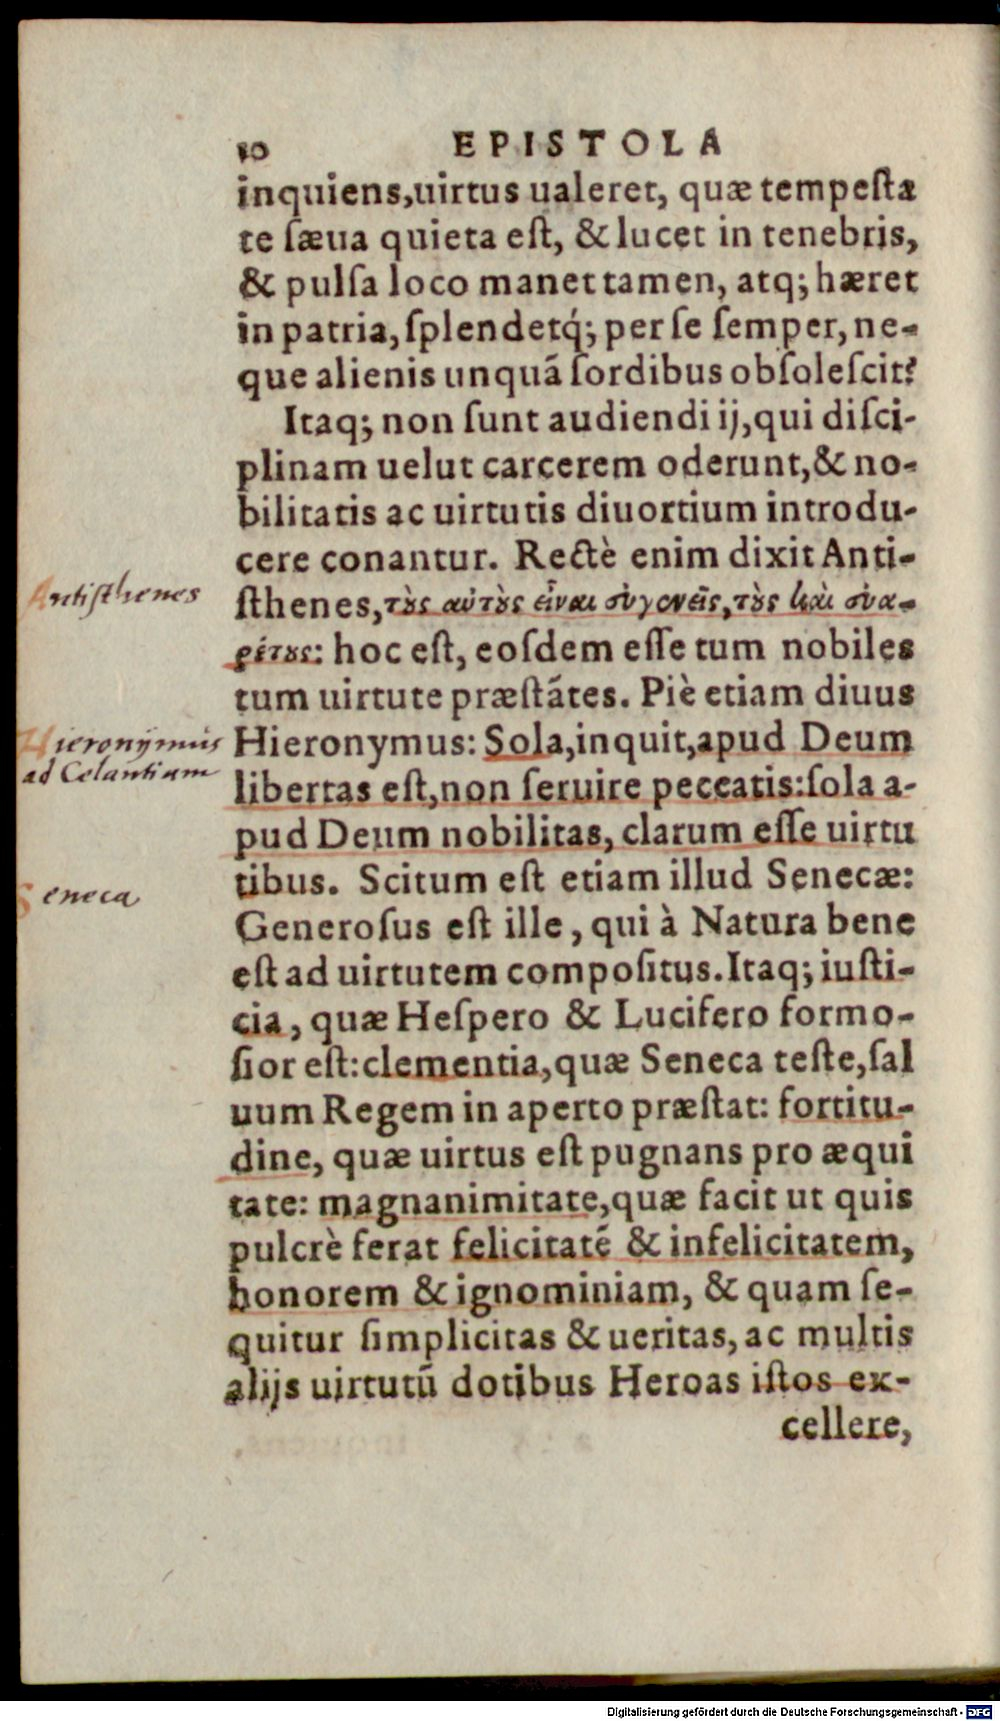 10 EPISTOLA
inquiens,uirtus ualeret, quæ tempesta
te sæua quieta est, & lucet in tenebris,
& pulsa loco manet tamen, atq; hæret
in patria, splendetq́; per se semper, ne-
que alienis unquā sordibus obsolescit?
Itaq; non sunt audiendi ij, qui disci-
plinam uelut carcerem oderunt, & no-
bilitatis ac uirtutis diuortium introdu-
cere conantur. Rectè enim dixit Anti-
Antisthenes
sthenes, τοὺς αὐτοὺς εἶναι συγγενεῖς, τοὺς καὶ ἐνα-
ρέτους: hoc est, eosdem esse tum nobiles
tum uirtute præstātes. Piè etiam diuus
Hieronymus
Hieronymus: Sola, inquit, apud Deum
ad Celantiam
libertas est, non seruire peccatis: sola a-
pud Deum nobilitas, clarum esse uirtu
tibus. Scitum est etiam illud Senecæ:
Seneca
Generosus est ille, qui à Natura bene
est ad uirtutem compositus. Itaq; iusti-
cia, quæ Hespero & Lucifero formo-
sior est: clementia, quæ Seneca teste, sal
uum Regem in aperto præstat: fortitu-
dine, quæ uirtus est pugnans pro æqui
tate: magnanimitate, quæ facit ut quis
pulcrè ferat felicitatē & infelicitatem,
honorem & ignominiam, & quam se-
quitur simplicitas & ueritas, ac multis
alijs uirtutū dotibus Heroas istos ex-
cellere,
Digitalisierung gefördert durch die Deutsche Forschungsgemeinschaft - DFG